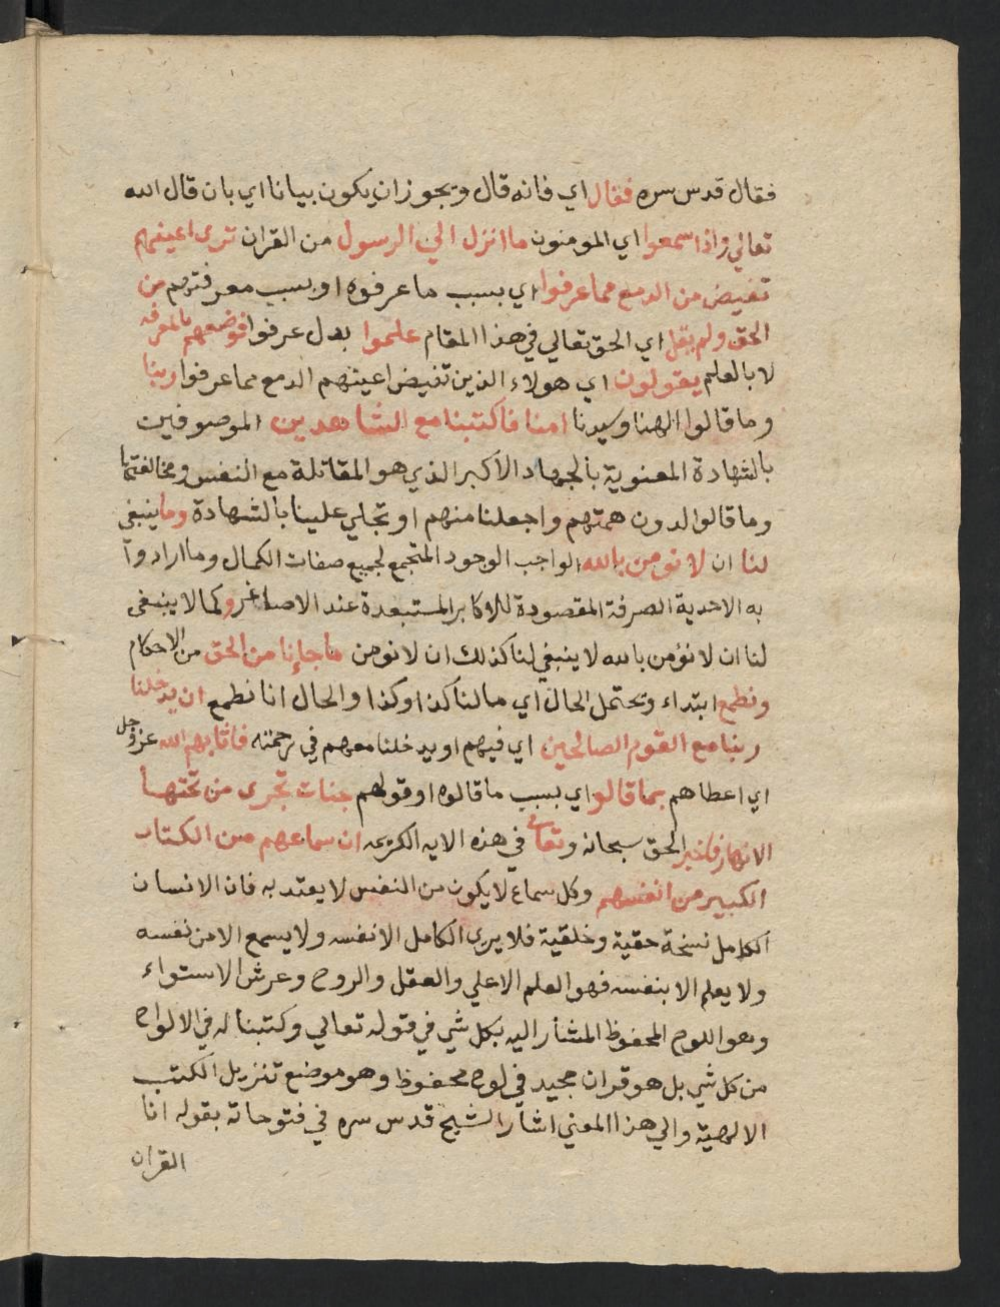 فقال قدس سره فقال اي فانه قال ويجوز ان يكون بيانا اي بان قال الله
تعالي واذا سمعوا اي المومنون ما انزل الي الرسول من القران ترى اعينهم
تفيض من الدمع مما عرفوا اي بسبب ما عرفوه او بسبب معرفتهم من
الحق ولم يقل اي الحق تعالي في هذا المقام علموا بدل عرفوا فوضعهم بالمعرفه
لا بالعلم يقولون اي هولاء الذين تفيض اعينهم الدمع مما عرفوا ربنا
وما قالوا الهنا وسيدنا امنا فاكتبنا مع الشاهدين الموصوفين
بالشهادة المعنوية بالجهاد الاكبر الذي هو المقاتلة مع النفس ومخالفتها
وما قالوا لدون همتهم واجعلنا منهم او تجلي علينا بالشهادة وما ينبغي
لنا ان لا نومن بالله الواجب الوجود المتجمع لجميع صفات الكمال وما ارادوا
به الاحدية الصرفة المقصودة للاكابر المستبعدة عند الاصاغر وكما لا ينبغي
لنا ان لا نؤمن بالله لا ينبغي لنا كذلك ان لا نومن ما جاءنا من الحق من الاحكام
ونطمع ابتداء وتحتمل الحال اي مالنا كذا وكذا والحال انا نطمع ان يدخلنا
ربنا مع القوم الصالحين اي فيهم او يدخلنا معهم في رحمته فاثابهم الله عز وجل
اي اعطاهم بما قالوا اي بسبب ما قالوه او قولهم جنات تجري من تحتها
الانهار فاخبر الحق سبحانه وتعالى في هذه الايه الكريمه ان سماعهم من الكتاب
الكبير من انفسهم وكل سماع لا يكون من النفس لا يعتد به فان الانسان
الكامل نسخة حقية وخلقية فلا يرى الكامل الا نفسه ولا يسمع الا من نفسه
ولا يعلم الا بنفسه فهو العلم الاعلي والعقل والروح وعرش الاستواء
وهو اللوح المحفوظ المشار اليه بكل شي في قوله تعالي وكتبنا له في الالواح
من كل شي بل هو قران مجيد في لوح محفوظ وهو موضع تنزيل الكتب
الالهية والي هذا المعني اشار الشيخ قدس سره في فتوحاته بقوله انا
القران